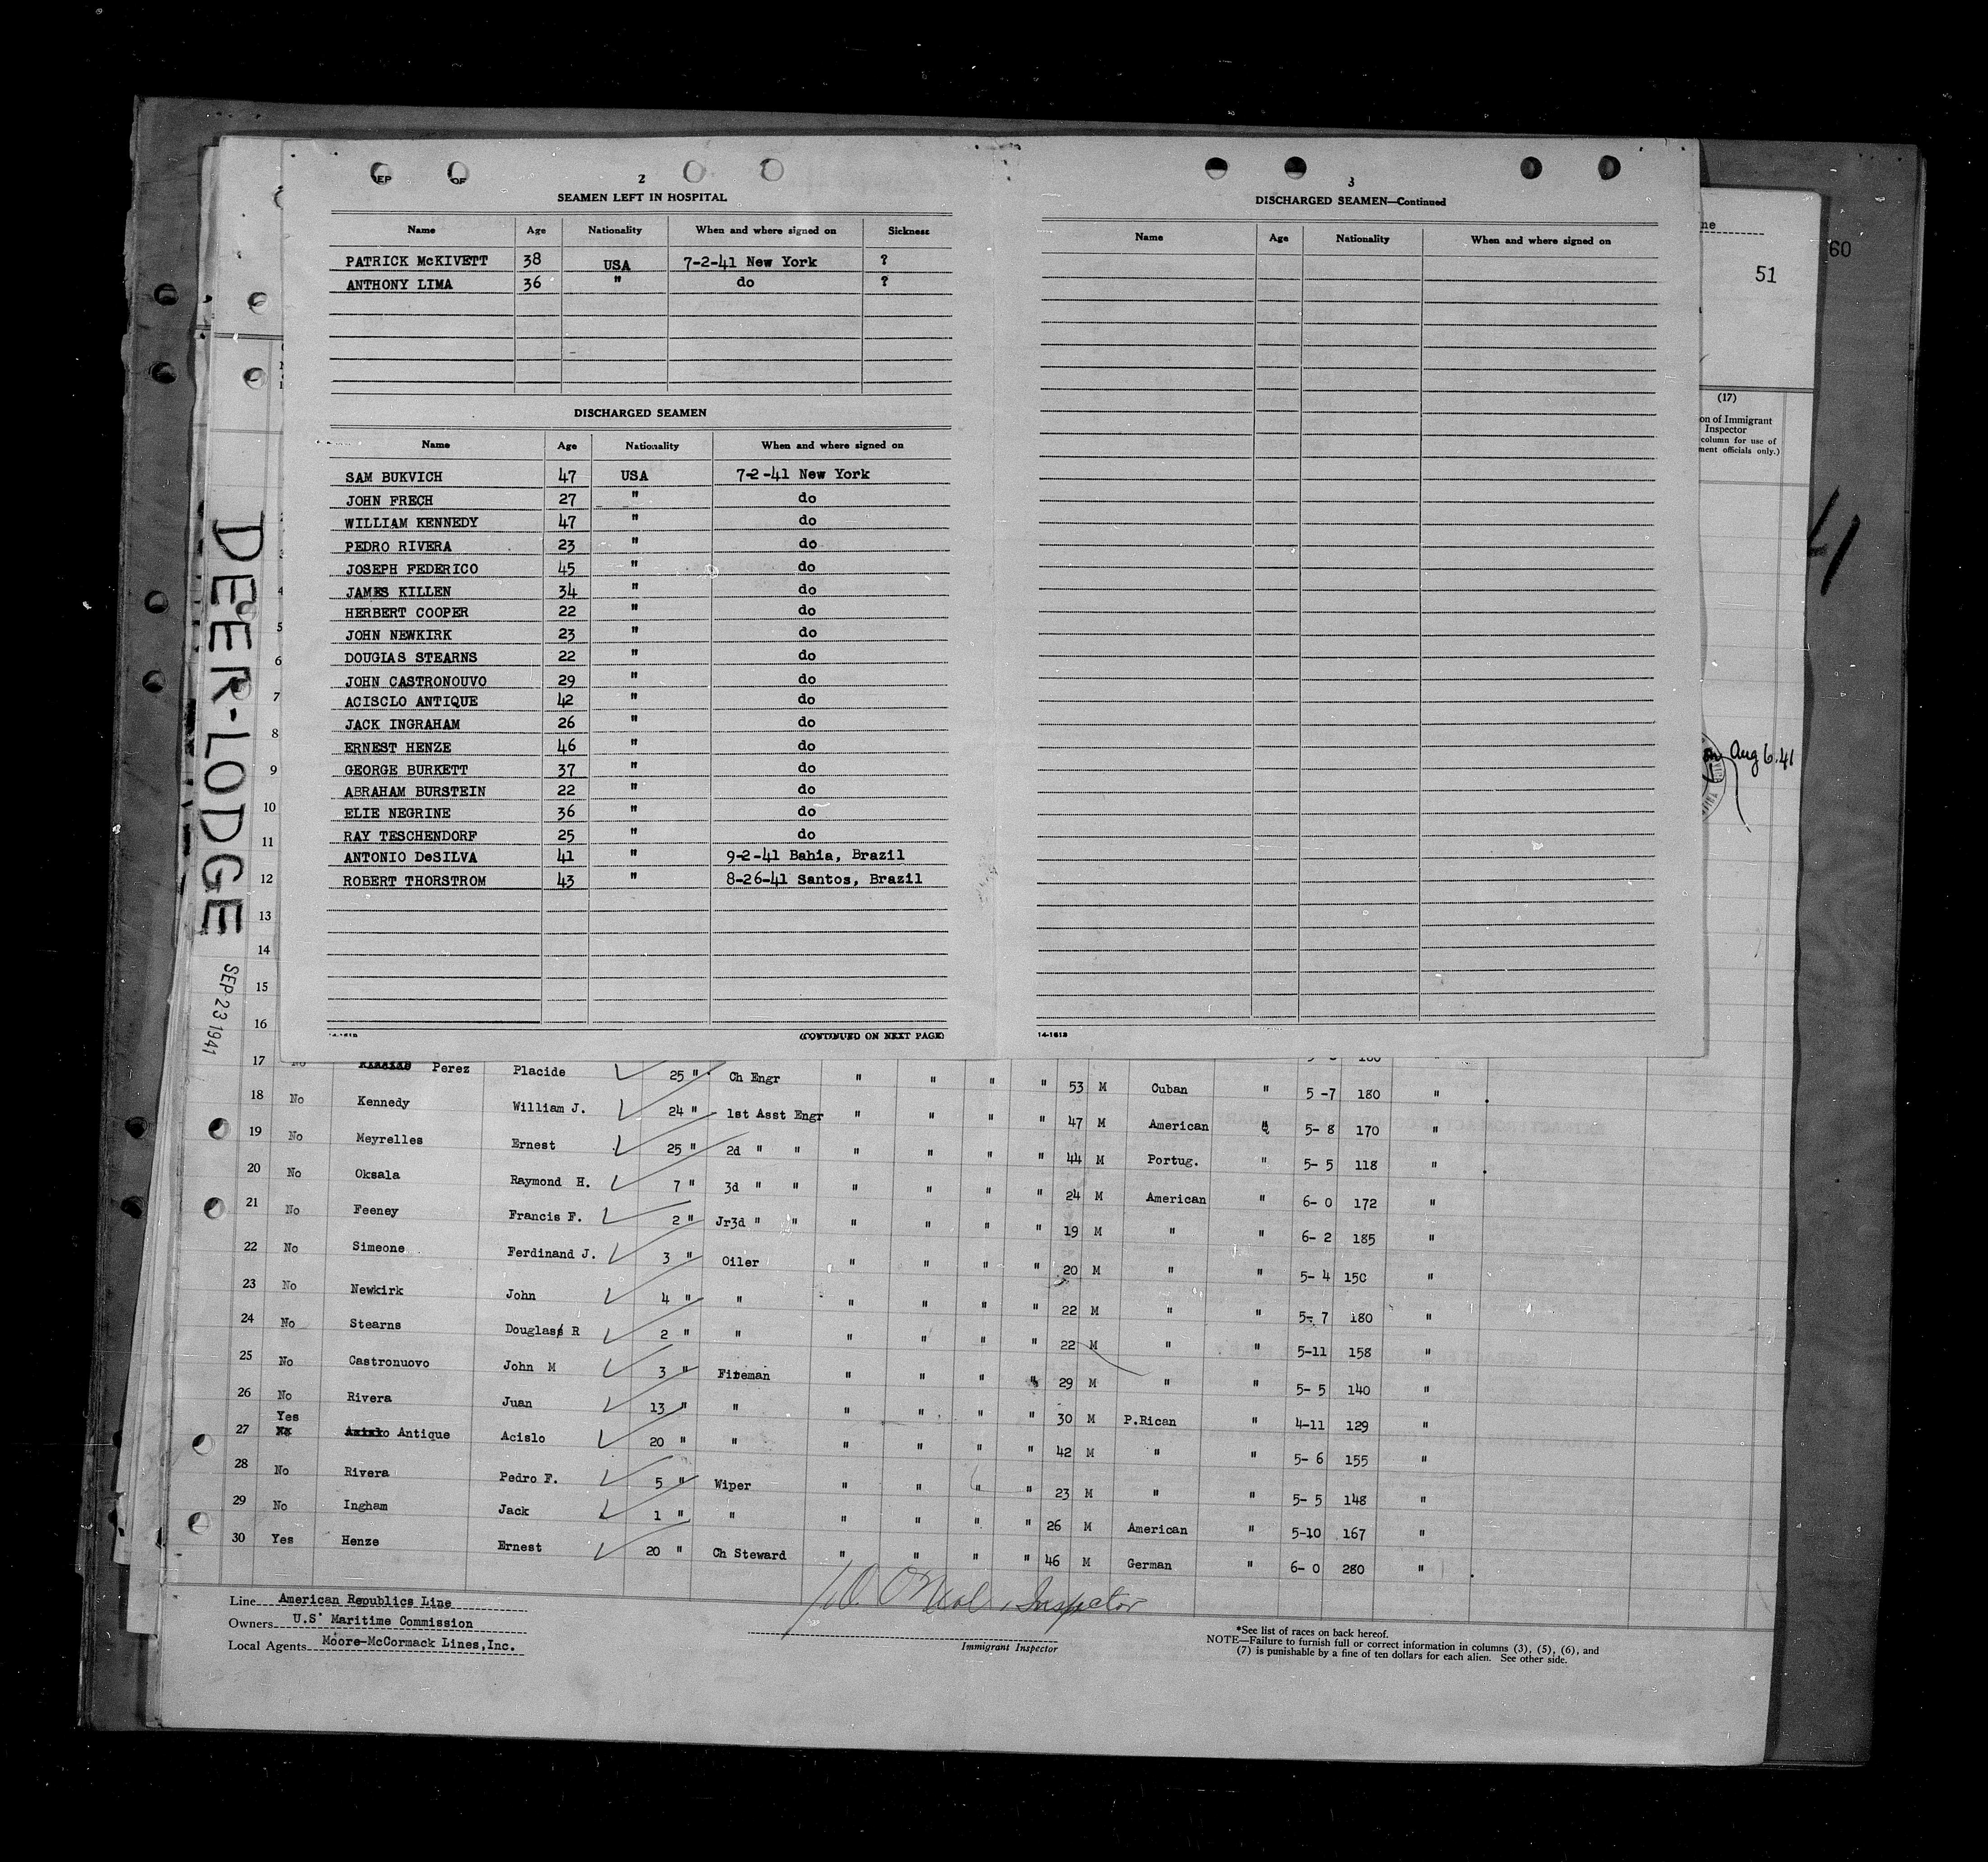 SEP OF
2
SEAMEN LEFT IN HOSPITAL
Name Age Nationality When and where signed on Sickness
PATRICK McKIVETT 38 USA 7-2-41 New York ?
ANTHONY LIMA 36 " do ?
DISCHARGED SEAMEN
Name Age Nationality When and where signed on
SAM BUKVICH 47 USA 7-2-41 New York
JOHN FRECH 27 " do
WILLIAM KENNEDY 47 " do
PEDRO RIVERA 23 " do
JOSEPH FEDERICO 45 " do
JAMES KILLEN 34 " do
HERBERT COOPER 22 " do
JOHN NEWKIRK 23 " do
DOUGLAS STEARNS 22 " do
JOHN CASTRONOUVO 29 " do
ACISCLO ANTIQUE 42 " do
JACK INGRAHAM 26 " do
ERNEST HENZE 46 " do
GEORGE BURKETT 37 " do
ABRAHAM BURSTEIN 22 " do
ELIE NEGRINE 36 " do
RAY TESCHENDORF 25 " do
ANTONIO DeSILVA 41 " 9-2-41 Bahia, Brazil
ROBERT THORSTROM 43 " 8-26-41 Santos, Brazil
(CONTINUED ON NEXT PAGE)
3
DISCHARGED SEAMEN—Continued
Name Age Nationality When and where signed on
14-1618
ne
60
51
(17)
on of Immigrant
Inspector
column for use of
ment officials only.)
41
Aug 6.41
DEER-LODGE
SEP 23 1941
5
6
7
8
9
10
11
12
13
14
15
16
17 No Perez Placide 25 " Ch Engr " " " " 53 M Cuban " 5 -7 180 "
18 No Kennedy William J. 24 " 1st Asst Engr " " " " 47 M American " 5- 8 170 "
19 No Meyrelles Ernest 25 " 2d " " " " " " 44 M Portug. " 5- 5 118 "
20 No Oksala Raymond H. 7 " 3d " " " " " " 24 M American " 6- 0 172 "
21 No Feeney Francis F. 2 " Jr3d " " " " " " 19 M " " 6- 2 185 "
22 No Simeone Ferdinand J. 3 " Oiler " " " " 20 M " " 5- 4 150 "
23 No Newkirk John 4 " " " " " " 22 M " " 5- 7 180 "
24 No Stearns Douglass R 2 " " " " " " 22 M " " 5-11 158 "
25 No Castronuovo John M 3 " Fireman " " " " 29 M " " 5- 5 140 "
26 No Rivera Juan 13 " " " " " " 30 M P.Rican " 4-11 129 "
27 Yes Antique Acislo 20 " " " " " " 42 M " " 5- 6 155 "
28 No Rivera Pedro F. 5 " Wiper " " " " 23 M " " 5- 5 148 "
29 No Ingham Jack 1 " " " " " " 26 M American " 5-10 167 "
30 Yes Henze Ernest 20 " Ch Steward " " " " 46 M German " 6- 0 280 "
Line American Republics Line
Owners U.S. Maritime Commission
Local Agents Moore-McCormack Lines,Inc.
O'Neal, Inspector
Immigrant Inspector
*See list of races on back hereof.
NOTE—Failure to furnish full or correct information in columns (3), (5), (6), and
(7) is punishable by a fine of ten dollars for each alien. See other side.